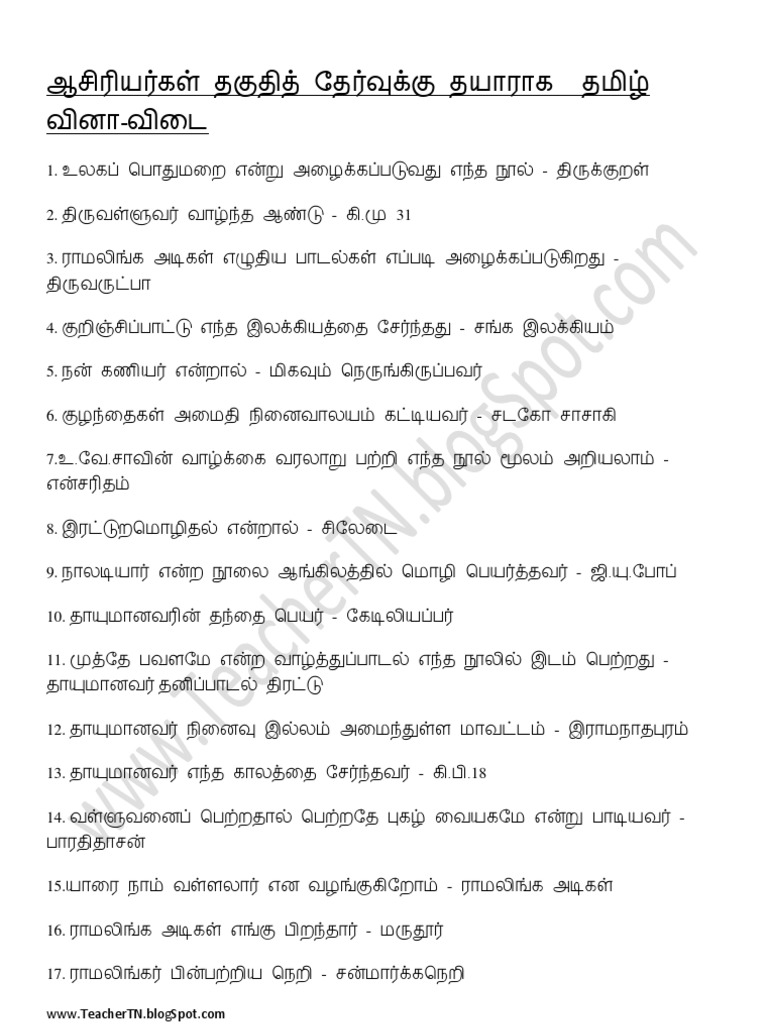 ஆசிரியர்கள் தகுதித் தேர்வுக்கு தயாராக தமிழ்
வினா-விடை
1. உலகப் பொதுமறை என்று அழைக்கப்படுவது எந்த நூல் - திருக்குறள்
2. திருவள்ளுவர் வாழ்ந்த ஆண்டு - கி.மு 31
3. ராமலிங்க அடிகள் எழுதிய பாடல்கள் எப்படி அழைக்கப்படுகிறது -
திருவருட்பா
4. குறிஞ்சிப்பாட்டு எந்த இலக்கியத்தை சேர்ந்தது - சங்க இலக்கியம்
5. நன் கணியர் என்றால் - மிகவும் நெருங்கிருப்பவர்
6. குழந்தைகள் அமைதி நினைவாலயம் கட்டியவர் - சடகோ சாசாகி
7.உ.வே.சாவின் வாழ்க்கை வரலாறு பற்றி எந்த நூல் மூலம் அறியலாம் -
என்சரிதம்
8. இரட்டுறமொழிதல் என்றால் - சிலேடை
9. நாலடியார் என்ற நூலை ஆங்கிலத்தில் மொழி பெயர்த்தவர் - ஜி.யு.போப்
10. தாயுமானவரின் தந்தை பெயர் - கேடிலியப்பர்
11. முத்தே பவளமே என்ற வாழ்த்துப்பாடல் எந்த நூலில் இடம் பெற்றது -
தாயுமானவர் தனிப்பாடல் திரட்டு
12. தாயுமானவர் நினைவு இல்லம் அமைந்துள்ள மாவட்டம் - இராமநாதபுரம்
13. தாயுமானவர் எந்த காலத்தை சேர்ந்தவர் - கி.பி.18
14. வள்ளுவனைப் பெற்றதால் பெற்றதே புகழ் வையகமே என்று பாடியவர் -
பாரதிதாசன்
15.யாரை நாம் வள்ளலார் என வழங்குகிறோம் - ராமலிங்க அடிகள்
16. ராமலிங்க அடிகள் எங்கு பிறந்தார் - மருதூர்
17. ராமலிங்கர் பின்பற்றிய நெறி - சன்மார்க்கநெறி
www.TeacherTN.blogSpot.com
www.TeacherTN.blogSpot.com